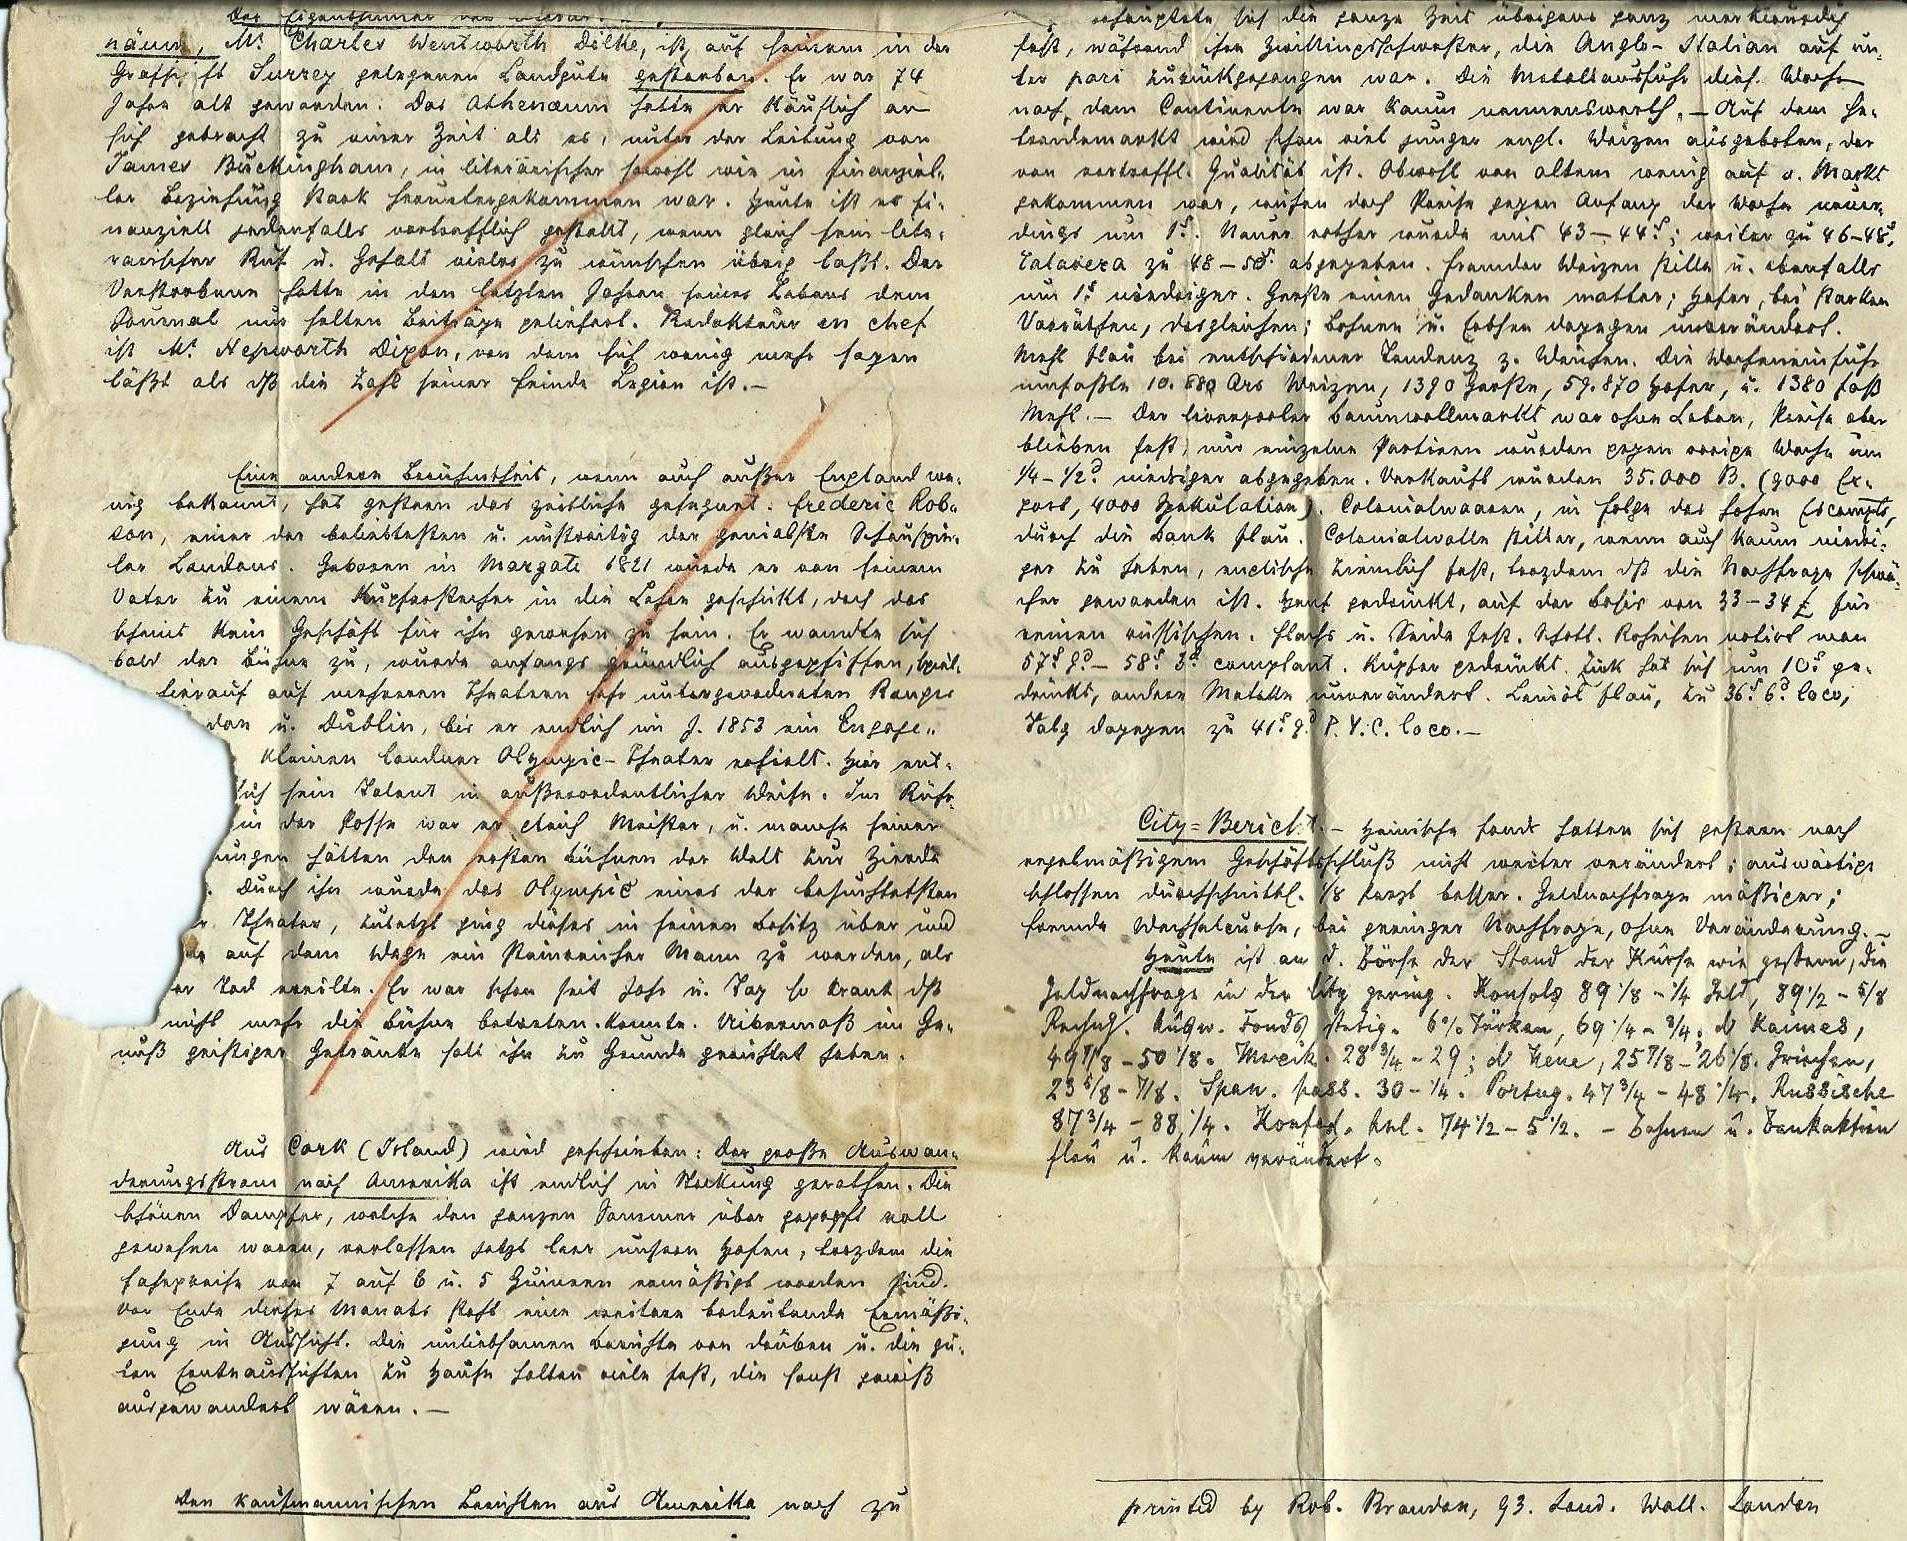 Der Eigenthümer des
näum, Mr Charles Wentworth Dilke, ist auf seinem in der
Grafschaft Surrey gelegenen Landgute gestorben. Er war 74
Jahre alt geworden. Das Athenæum hatte er käuflich an
sich gebracht zu einer Zeit als es, unter der Leitung von
James Buckingham, in literärischer sowohl wie in finanziel-
ler Beziehung stark heruntergekommen war. Heute ist es fi-
nanziell jedenfalls vortrefflich gestellt, wenn gleich sein lite-
rarischer Ruf u. Gehalt vieles zu wünschen übrig laßt. Der
Verstorbene hatte in den letzten Jahren seines Lebens dem
Journal nur selten Beiträge geliefert. Redakteur en chef
ist Mr. Hepworth Dixon, von dem sich wenig mehr sagen
läßt als dß die Zahl seiner Feinde Legion ist.—
Eine andere Berühmtheit, wenn auch außer England we-
nig bekannt, hat gestern das zeitliche gesegnet: Frederic Rob-
son, einer der beliebtesten u. unstreitig der genialste Schauspie-
ler Londons. Geboren in Margate 1821 wurde er von seinem
Vater zu einem Kupferstecher in die Lehre geschikt, doch das
scheint kein Geschäft für ihn gewesen zu sein. Er wandte sich
bald der Bühne zu, wurde anfangs gründlich ausgepfiffen, spiel-
hierauf auf mehreren Theatern sehr untergeordneten Ranges
don u. Dublin, bis er endlich im J. 1853 ein Engage-
kleinen londner Olympic-Theater erhielt. Hier ent-
sich sein Talent in außerordentlicher Weise. Im Rühr-
in der Posse war er gleich Meister, u. manche seiner
ungen hätten den ersten Bühnen der Welt zur Zierde
. Durch ihn wurde das Olympic eines der besuchtesten
r Theater, zuletzt ging dieses in seinen Besitz über und
auf dem Wege ein steinreicher Mann zu werden, als
er Tod ereilte. Er war schon seit Jahr u. Tag so krank dß
nicht mehr die Bühne betreten konnte. Uibermaß im Ge-
nuß geistiger Getränke soll ihn zu Grunde gerichtet haben.
Aus Cork (Irland) wird geschrieben: Der große Auswan-
derungsstrom nach Amerika ist endlich in Stockung gerathen. Die
schönen Dampfer, welche den ganzen Sommer über gepropft voll
gewesen waren, verlassen jetzt leer unsern Hafen, trozdem die
Fahrpreise von 7 auf 6 u. 5 Guineen ermäßigt worden sind.
Vor Ende dieses Monats steht eine weitere bedeutende Ermäßi-
gung in Aussicht. Die unliebsamen Berichte von drüben u. die gu-
ten Ernteaussichten zu Hause halten viele fest, die sonst gewiß
ausgewandert wären.—
Den kaufmannischen Berichten aus Amerika nach zu
behauptete sich die ganze Zeit übrigens ganz merkwürdig
fest, während ihre Zwillingsschwester, die Anglo-Italian auf un-
ter pari zurückgegangen war. Die Metallausfuhr dies. Woche
nach dem Continente war kaum nennenswerth.— Auf dem Ge-
treidemarkt wird schon viel junger engl. Weizen ausgeboten, der
von vortreffl. Qualität ist. Obwohl von altem wenig auf d. Markt
gekommen war, wichen doch Preise gegen Anfang der Woche neuer-
dings um 1s. Neuer rother wurde mit 43—44s; weiter zu 46—48s,
Talavera zu 48—50s abgegeben. Fremder Weizen stille u. ebenfalls
um 1s niedriger. Gerste einen Gedanken matter; Hafer, bei starken
Vorräthen, desgleichen; Bohnen u. Erbsen dagegen unverändert.
Mehl flau bei entschiedener Tendenz z. Weichen. Die Wocheneinfuhr
umfaßte 10.880 Qrs Weizen, 1390 Gerste, 59.870 Hafer, u. 1380 Faß
Mehl.— Der liverpooler Baumwollmarkt war ohne Leben, Preise aber
blieben fest, nur einzelne Partieen wurden gegen vorige Woche um
1/4—1/2d niedriger abgegeben. Verkauft wurden 35.000 B. (9000 Ex-
port, 4000 Spekulation). Colonialwaaren, in Folge des hohen Escompts,
durch die Bank flau. Colonialwolle stiller, wenn auch kaum niedri-
ger zu haben, englische ziemlich fest, trozdem dß die Nachfrage schwä-
cher geworden ist. Hanf gedrückt, auf der Basis von 33—34£ für
reinen russischen. Flachs u. Seide fest. Schott. Roheisen notirt man
57s 9d—58s 3d comptant. Kupfer gedrückt. Zink hat sich um 10s ge-
drückt, andere Metalle unverändert. Leinöl flau, zu 36s 6d loco,
Talg dagegen zu 41s 9d P.Y.C. loco.—
City=Bericht.— Heimische Fonds hatten sich gestern nach
regelmäßigem Geschäftsschluß nicht weiter verändert; auswärtige
schlossen durchschnittl. 1/8 Perzt besser. Geldnachfrage mäßiger;
fremde Wechselcurse, bei geringer Nachfrage, ohne Veränderung.—
Heute ist an d. Börse der Stand der Kurse wie gestern, die
Geldnachfrage in der City gering. Konsols 89 1/8—1/4 Geld, 89 1/2—5/8
Rechng. Ausw. Fonds stetig. 6% Türken, 69 1/4—3/4. do Kaimes,
49 7/8—50 1/8. Mexik. 28 3/4—29; do Neue, 25 7/8—26 1/8. Griechen,
23 5/8—7/8. Span. pass. 30—1/4. Portug. 47 3/4—48 1/4. Russische
87 3/4—88 1/4. Konfed. Anl. 74 1/2—5 1/2.— Bahnen u. Bankaktien
flau u. kaum verändert.
printed by Rob. Brandon, 93. Lond. Wall. London